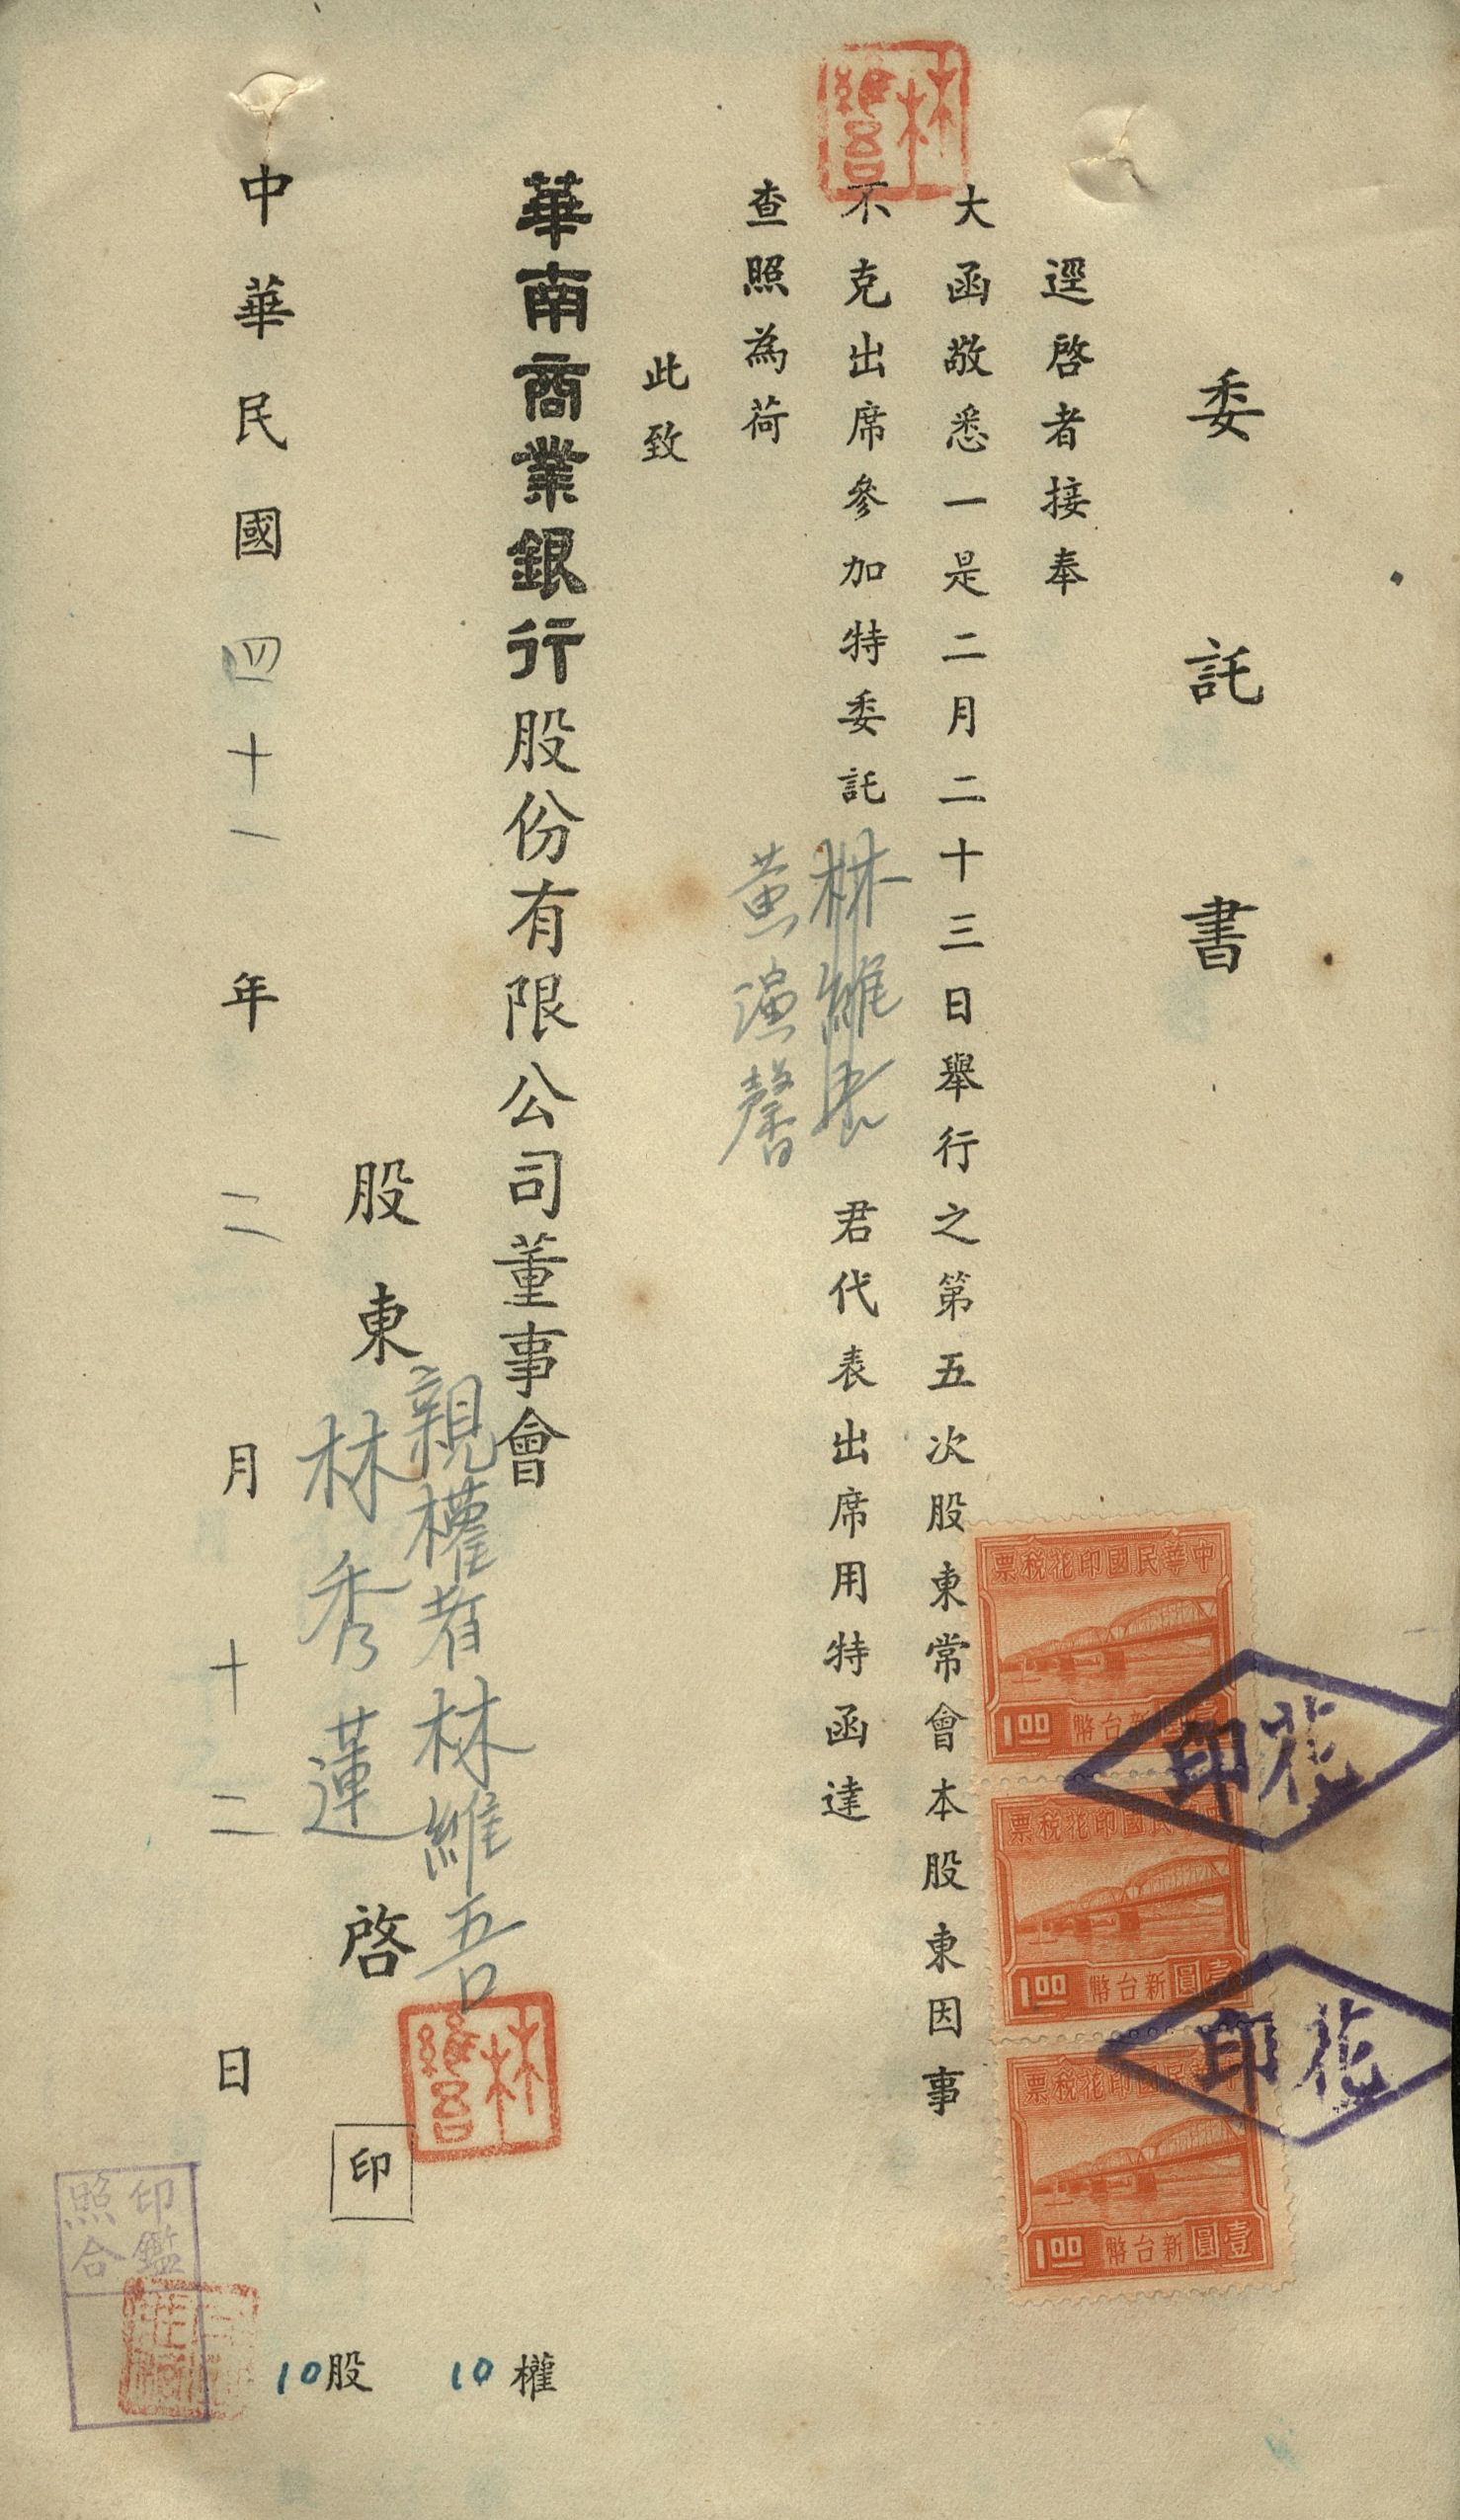 委託書
逕啓者接奉
大函敬悉一是二月二十三日舉行之第五次股東常會本股東因事
不克出席參加特委託林維 君代表出席用特函達
黃演馨
查照為荷
此致
華南商業銀行股份有限公司董事會
親權者林維吾
股東林秀蓮啓
印
中華民國四十一年二月十二日
10權
10股
林維吾
林維吾
中華民國印花稅票
壹圓新台幣1.00
中華民國印花稅票
壹圓新台幣1.00
中華民國印花稅票
壹圓新台幣1.00
花印
花印
印鑑
照合